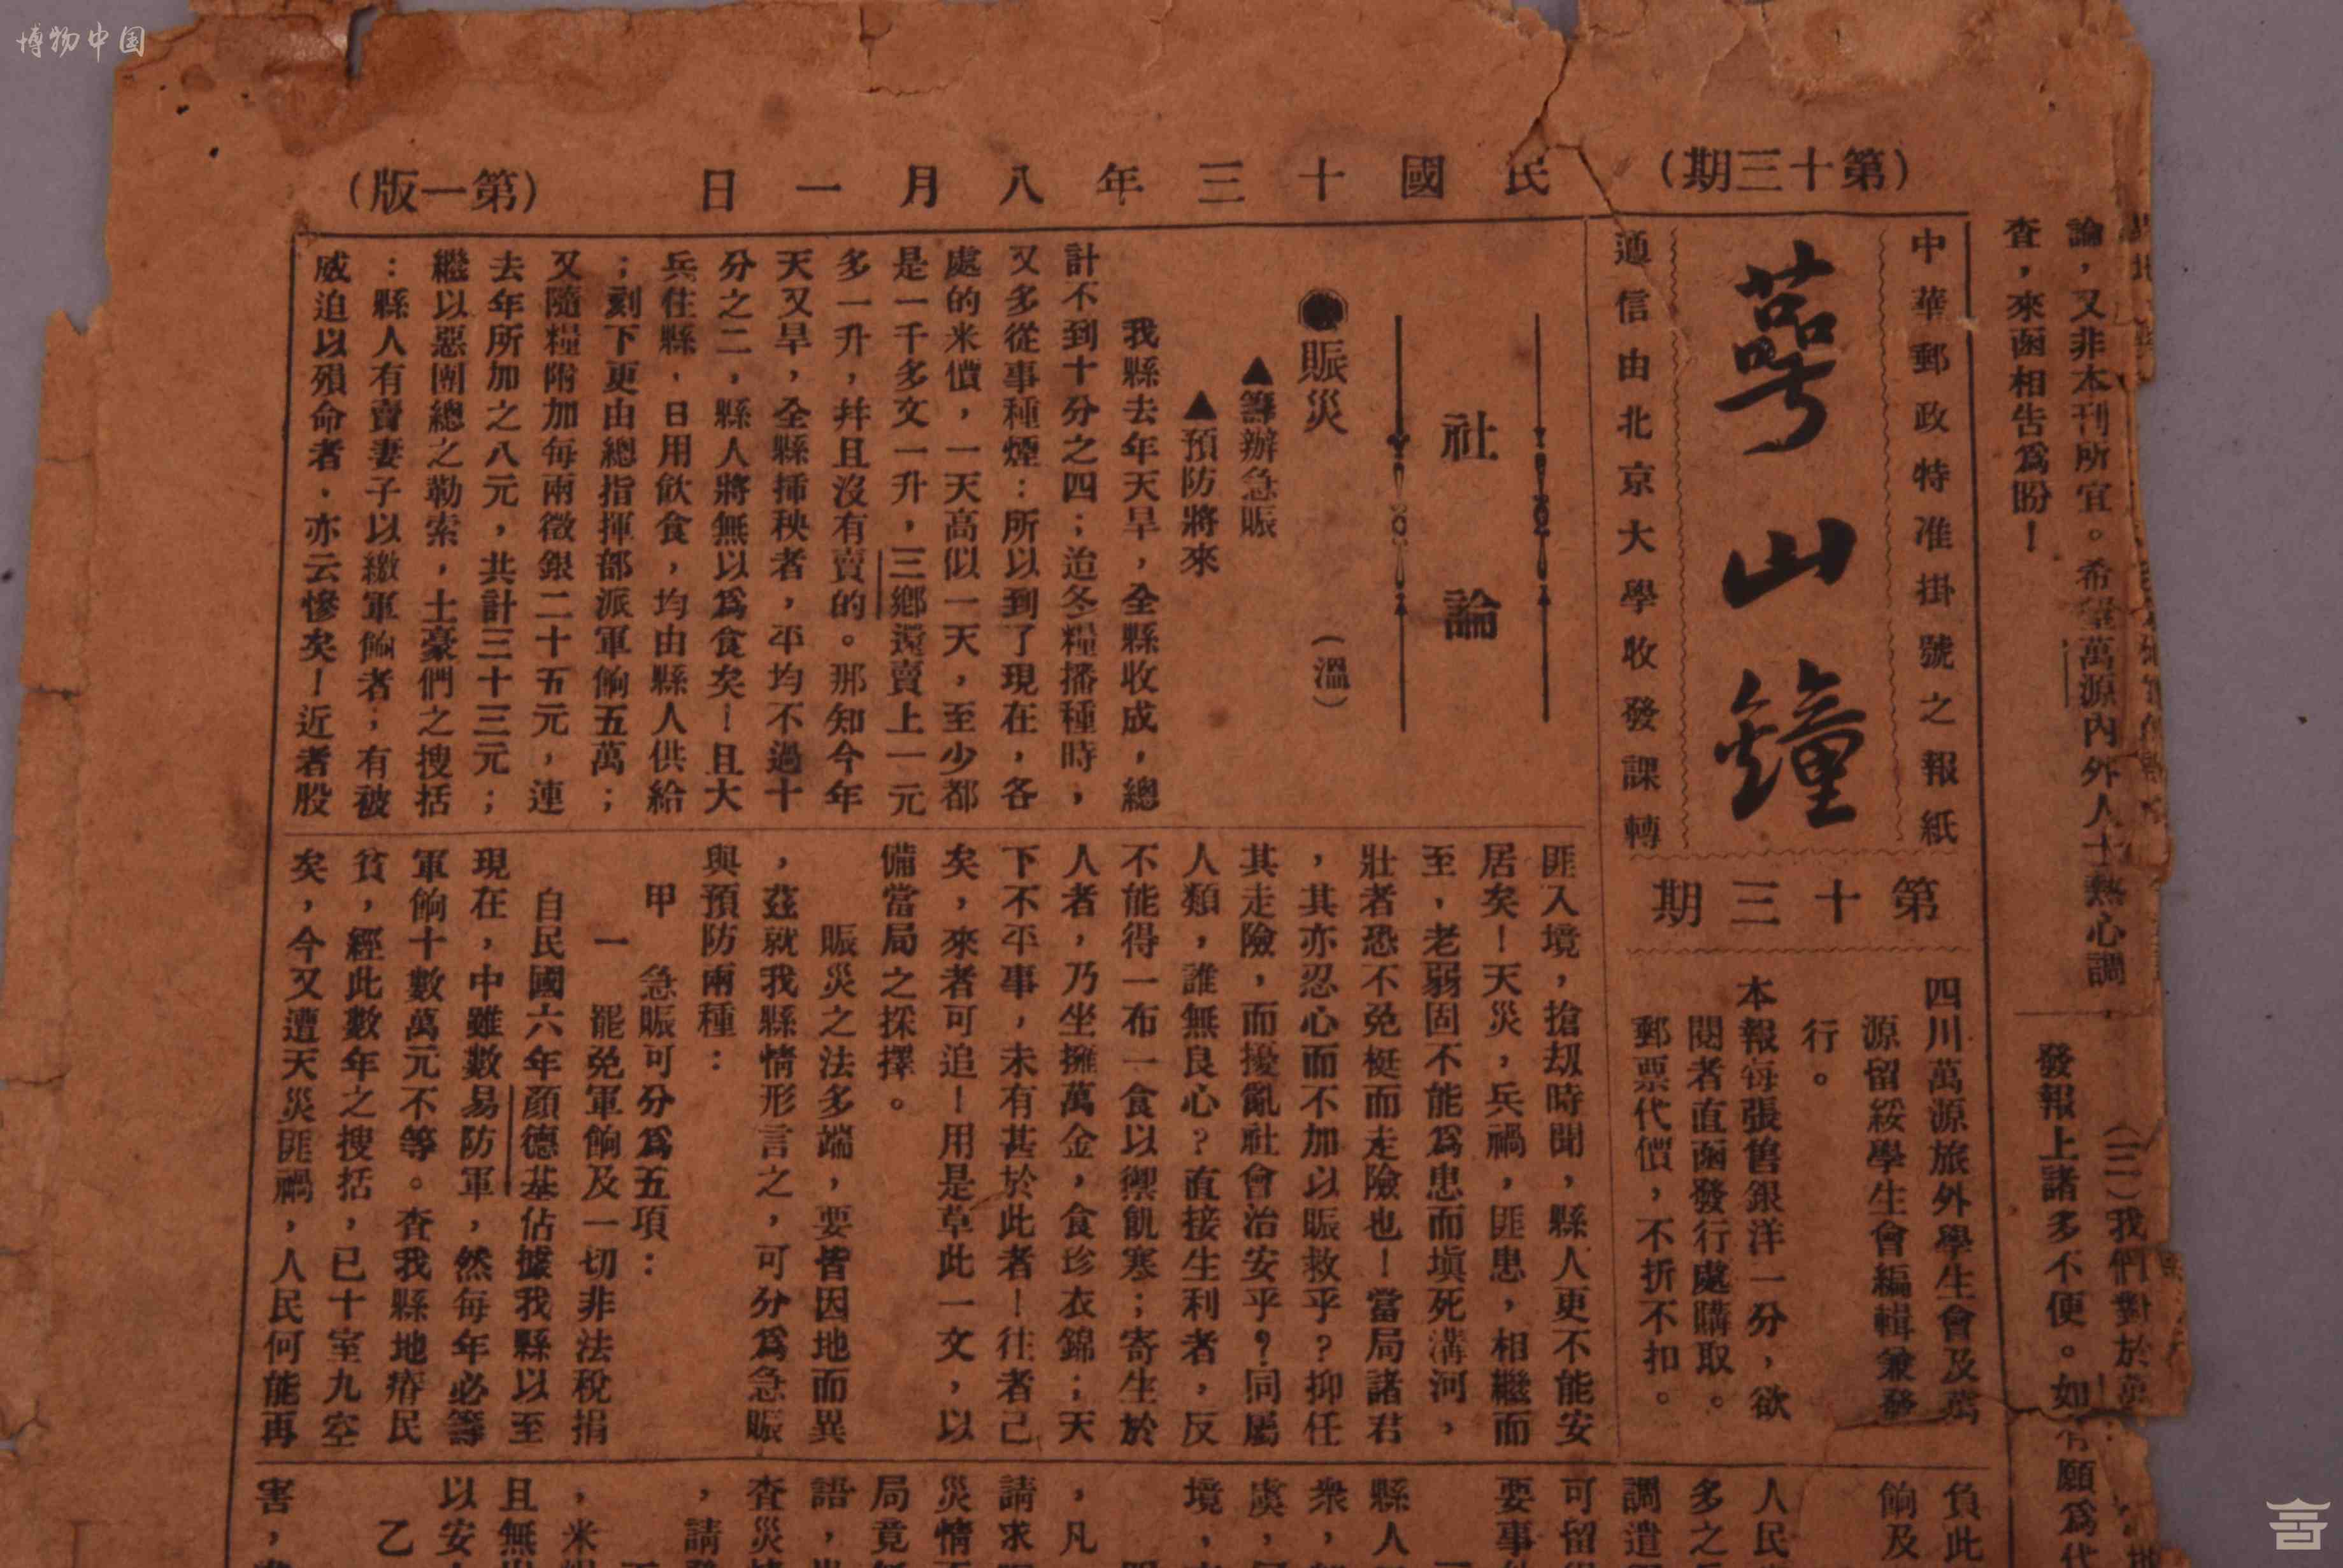 博物中国
(第十三期)
民國十三年八月一日
(第一版)
中華郵政特准掛號之報紙
萼山鐘
通信由北京大學收發課轉
第十三期
四川萬源旅外學生會及萬
源留綏學生會編輯兼發
行。
本報每張售銀洋一分，欲
閱者直函發行處購取。
郵票代價，不折不扣。
社論
●賑災 (溫)
▲籌辦急賑
▲預防將來
我縣去年天旱，全縣收成，總
計不到十分之四；迨冬糧播種時，
又多從事種煙：所以到了現在，各
處的米價，一天高似一天，至少都
是一千多文一升，三鄉還賣上一元
多一升，幷且沒有賣的。那知今年
天又旱，全縣揷秧者，平均不過十
分之二，縣人將無以爲食矣！且大
兵住縣，日用飮食，均由縣人供給
；刻下更由總指揮部派軍餉五萬；
又隨糧附加每兩徵銀二十五元，連
去年所加之八元，共計三十三元；
繼以惡團總之勒索，土豪們之搜括
：縣人有賣妻子以繳軍餉者；有被
威迫以殞命者，亦云慘矣！近者股
匪入境，搶刼時聞，縣人更不能安
居矣！天災，兵禍，匪患，相繼而
至，老弱固不能爲患而塡死溝河，
壯者恐不免梃而走險也！當局諸君
，其亦忍心而不加以賑救乎？抑任
其走險，而擾亂社會治安乎？同屬
人類，誰無良心？直接生利者，反
不能得一布一食以禦飢寒；寄生於
人者，乃坐擁萬金，食珍衣錦；天
下不平事，未有甚於此者！往者已
矣，來者可追！用是草此一文，以
備當局之採擇。
賑災之法多端，要皆因地而異
，茲就我縣情形言之，可分爲急賑
與預防兩種：
甲 急賑可分爲五項：
一 罷免軍餉及一切非法稅捐
自民國六年顔德基佔據我縣以至
現在，中雖數易防軍，然每年必籌
軍餉十數萬元不等。查我縣地瘠民
貧，經此數年之搜括，已十室九空
矣，今又遭天災匪禍，人民何能再
論，又非本刊所宜。希望萬源內外人士熱心調
查，來函相告爲盼！
(三)我們對於萬
發報上諸多不便。如有願爲代
負此
餉及
人民
多之
調遣
可留
要事
縣人
衆，
虞，
境，
，凡
請求
災情
局竟
語，
查災
，請
，米
且無
以安
乙
害，